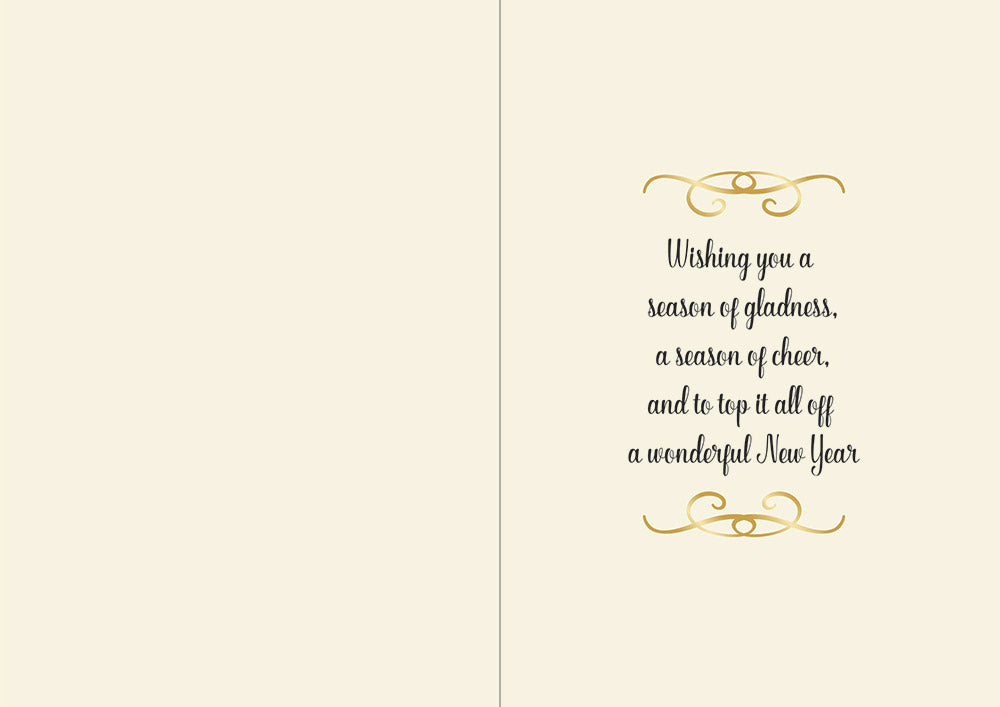 Wishing you a
season of gladness,
a season of cheer,
and to top it all off
a wonderful New Year